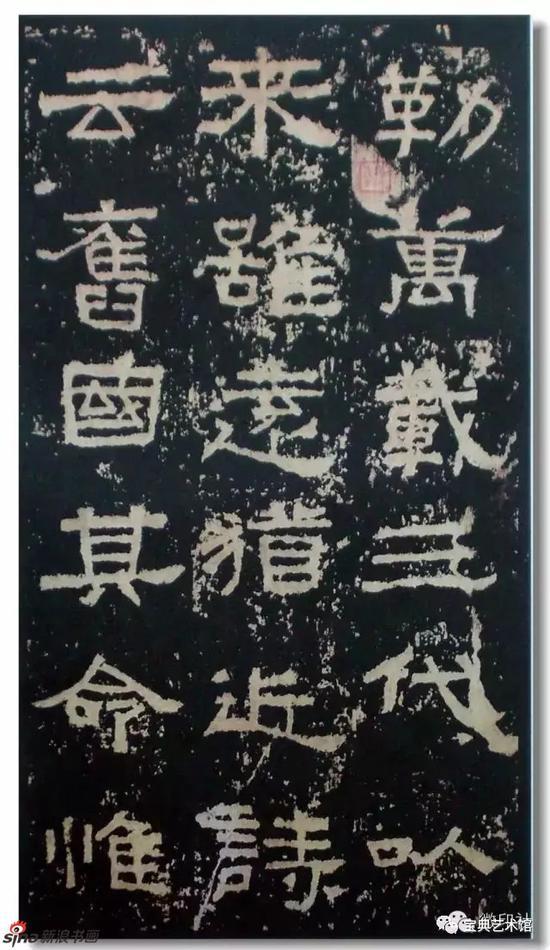 勒萬載三代以
来雖遠猶近詩
云舊國其命惟
sina新浪书画
宝典艺术馆